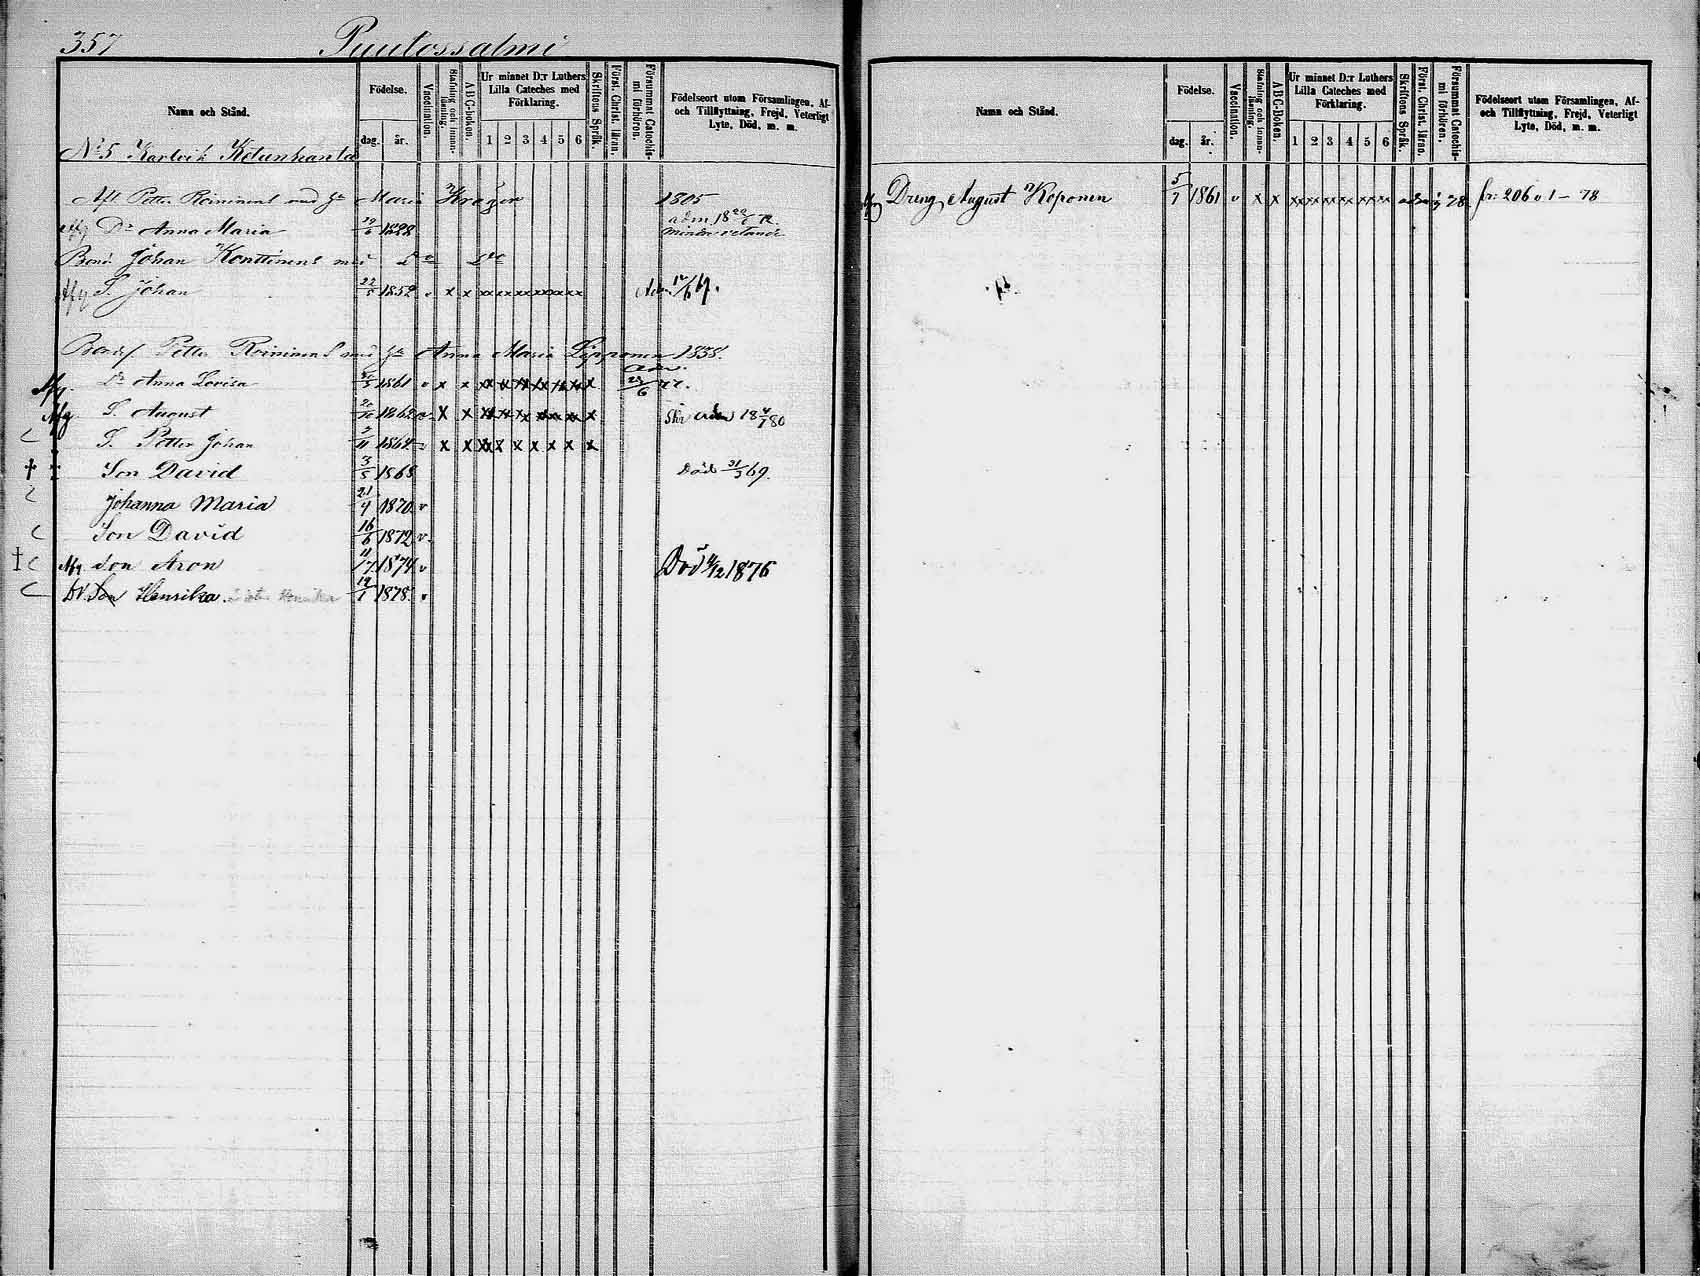 357 Puulossalmi
Namn och Stånd.
Födelse.
dag. år.
Vaccination.
Stafning och innan-läsning.
A B C-boken.
Ur minnet D:r Luthers Lilla Cateches med Förklaring.
1 2 3 4 5 6
Skriftens Språk.
Först. Christ. läran.
Försummat Catechis-mi förhören.
Födelseort utom Församlingen, Af- och Tillflyttning, Frejd, Veterligt Lyte, Död, m. m.
No 5 Karlvik Ketunhanta
Petter Roininens med Maria Kröger 1805
Dr Anna Maria 1828 adm 18
Bond Johan Konttinens med Do Do
Afg S. Johan 22/5 1852 v x x xx xx xx xx xx xx
Petter Roininens med Anna Maria Lipponen 1838.
Afg. Dr Anna Lovisa 1861 v x x xx xx xx xx xx xx x 77.
Afg S. August 20/10 1862 v x x xx xx xx xx xx xx x adm 18 80
S. Petter Johan 1864 x x xx x x x x x x
† Son David 3/5 1868 Död 31/3 69.
Johanna Maria 21/4 1870 v
Son David 16/6 1872 v
† Afg Son Aron 1874 v Död 1876
Dr. Son Henrika 1878. v
Namn och Stånd.
Födelse.
dag. år.
Vaccination.
Stafning och innan-läsning.
A B C-Boken.
Ur minnet D:r Luthers Lilla Cateches med Förklaring.
1 2 3 4 5 6
Skriftens Språk.
Först. Christ. läran.
Försummat Catechis-mi förhören.
Födelseort utom Församlingen, Af- och Tillflyttning, Frejd, Veterligt Lyte, Död, m. m.
Dreng August Koponen 5/7 1861 v x x xx xx xx xx xx xx adm 78 fr: 206 v 1 – 78